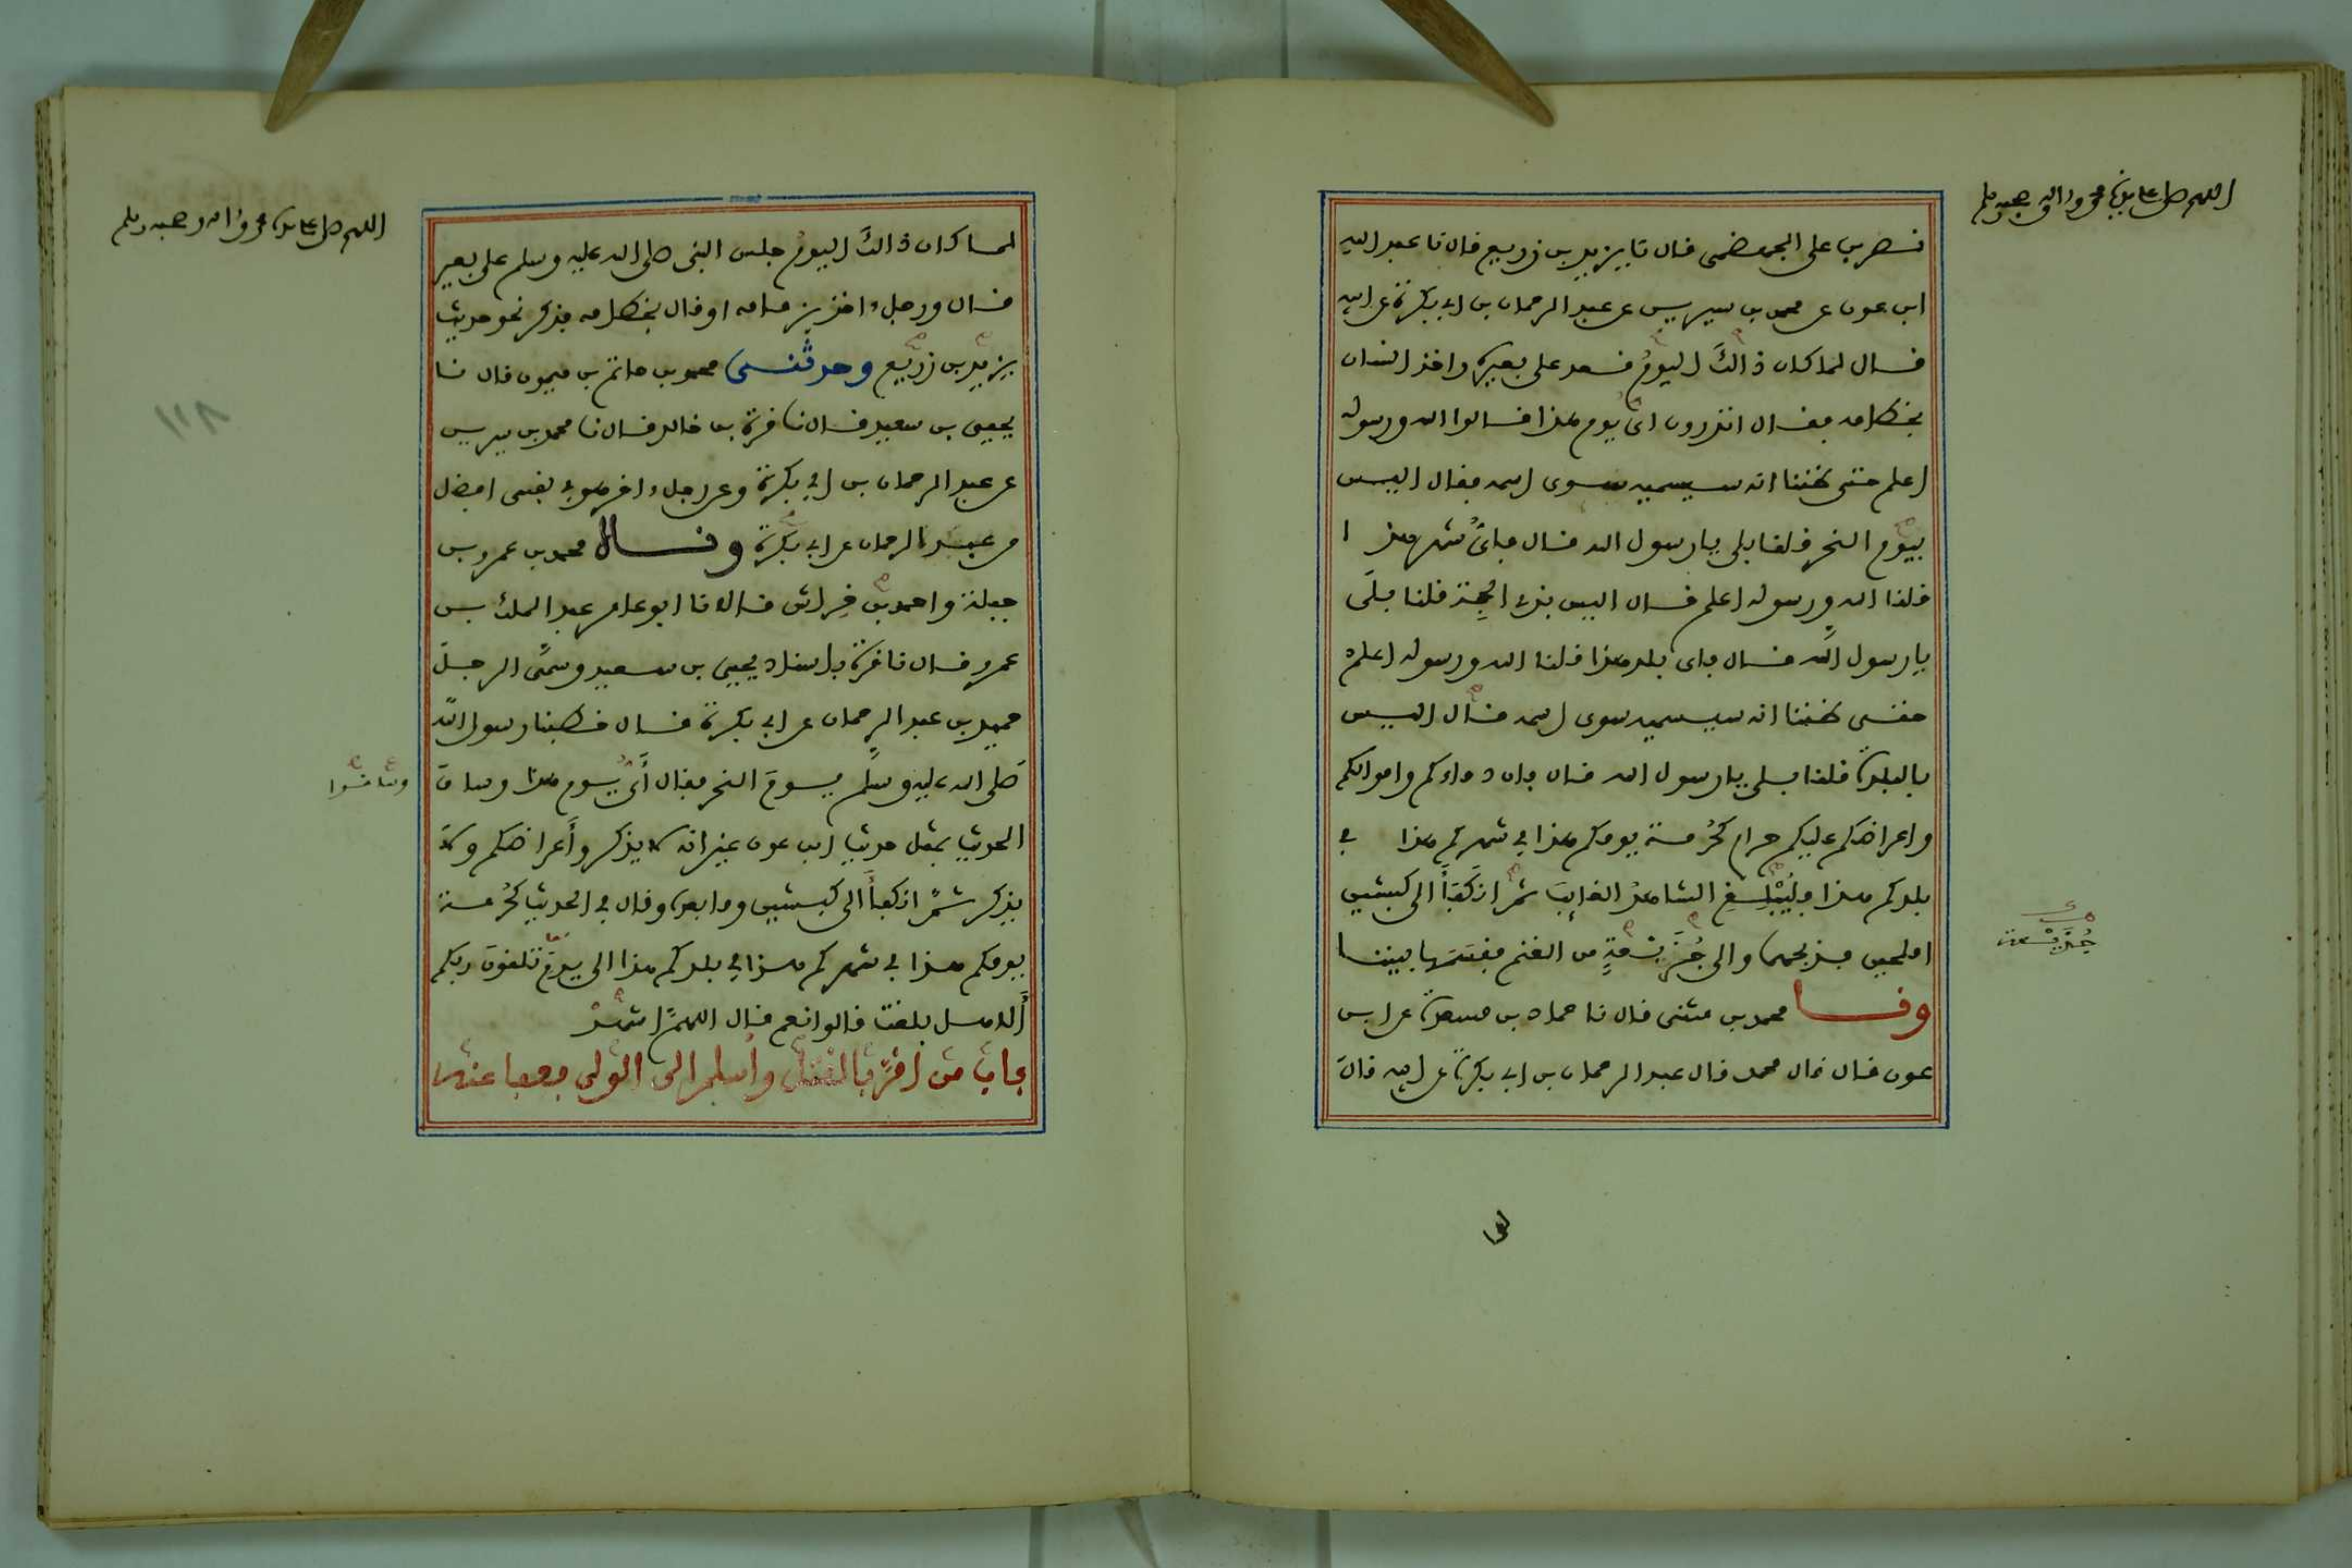 اللهم صل على سيدنا محمد واله وصحبه وسلم
نصر بن علي الجهضمي قال نا يزيد بن زريع قال نا عبد الله
ابن عون عن محمد بن سيرين عن عبد الرحمان بن ابي بكرة عن ابيه
قال لما كان ذالك اليوم قعد على بعيره واخذ انسان
بخطامه فقال اتدرون اي يوم هذا قالوا الله ورسوله
اعلم حتى ظننا انه سيسميه سوى اسمه فقال اليس
بيوم النحر قلنا بلى يا رسول الله قال فاي شهر هذا
قلنا الله ورسوله اعلم قال اليس بذي الحجة قلنا بلى
يا رسول الله قال فاي بلد هذا قلنا الله ورسوله اعلم
حتى ظننا انه سيسميه سوى اسمه قال اليس
بالبلدة قلنا بلى يا رسول الله قال فان دماءكم واموالكم
واعراضكم عليكم حرام كحرمة يومكم هذا في شهركم هذا في
بلدكم هذا فليبلغ الشاهد الغايب ثم انكفأ الى كبشين
املحين فذبحهما والى جزيعة من الغنم فقسمها بيننا
جزيعة
وقال محمد بن مثنى قال نا حماد بن مسعدة عن ابن
عون قال قال محمد قال عبد الرحمان بن ابي بكرة عن ابيه قال
لما
اللهم صل على سيدنا محمد واله وصحبه وسلم
لما كان ذالك اليوم جلس النبي صلى الله عليه وسلم على بعير
قال ورجل ءاخذ بزمامه او قال بخطامه فذكر نحو حديث
يزيد بن زريع وحدثني محمد بن حاتم بن ميمون قال نا
١١٨
يحيى بن سعيد قال نا قرة بن خالد قال نا محمد بن سيرين
عن عبد الرحمان بن ابي بكرة وعن رجل ءاخر هو في نفسي افضل
من عبد الرحمان عن ابي بكرة وقال محمد بن عمرو بن
جبلة واحمد بن خراش قالا نا ابو عامر عبد الملك بن
عمرو قال نا قرة باسناد يحيى بن سعيد وسمى الرجل
حميد بن عبد الرحمان عن ابي بكرة قال خطبنا رسول الله
صلى الله عليه وسلم يوم النحر فقال أي يوم هذا وساق
وساقوا
الحديث بمثل حديث ابن عون غير انه لا يذكر وأعراضكم ولا
يذكر ثم انكفأ الى كبشين وما بعده وقال في الحديث كحرمة
يومكم هذا في شهركم هذا في بلدكم هذا الى يوم تلقون ربكم
ألا هل بلغت قالوا نعم قال اللهم اشهد
باب من اقر بالقتل وأسلم الى الولي فعفا عنه